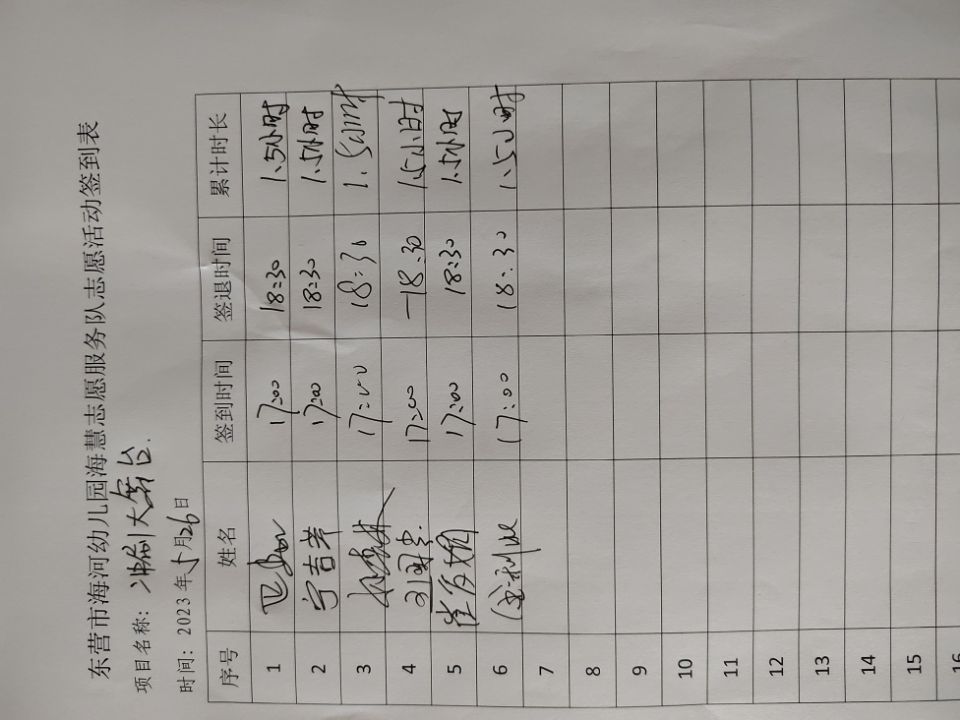 东营市海河幼儿园海慧志愿服务队志愿活动签到表
项目名称: 大舞台.
时间: 2023年5月26日
序号 姓名 签到时间 签退时间 累计时长
1 17:00 18:30 1.5小时
2 宁吉芳 17:00 18:30 1.5小时
3 17:00 18:30 1.5小时
4 17:00 18:30 1.5小时
5 17:00 18:30 1.5小时
6 17:00 18:30 1.5小时
7
8
9
10
11
12
13
14
15
16